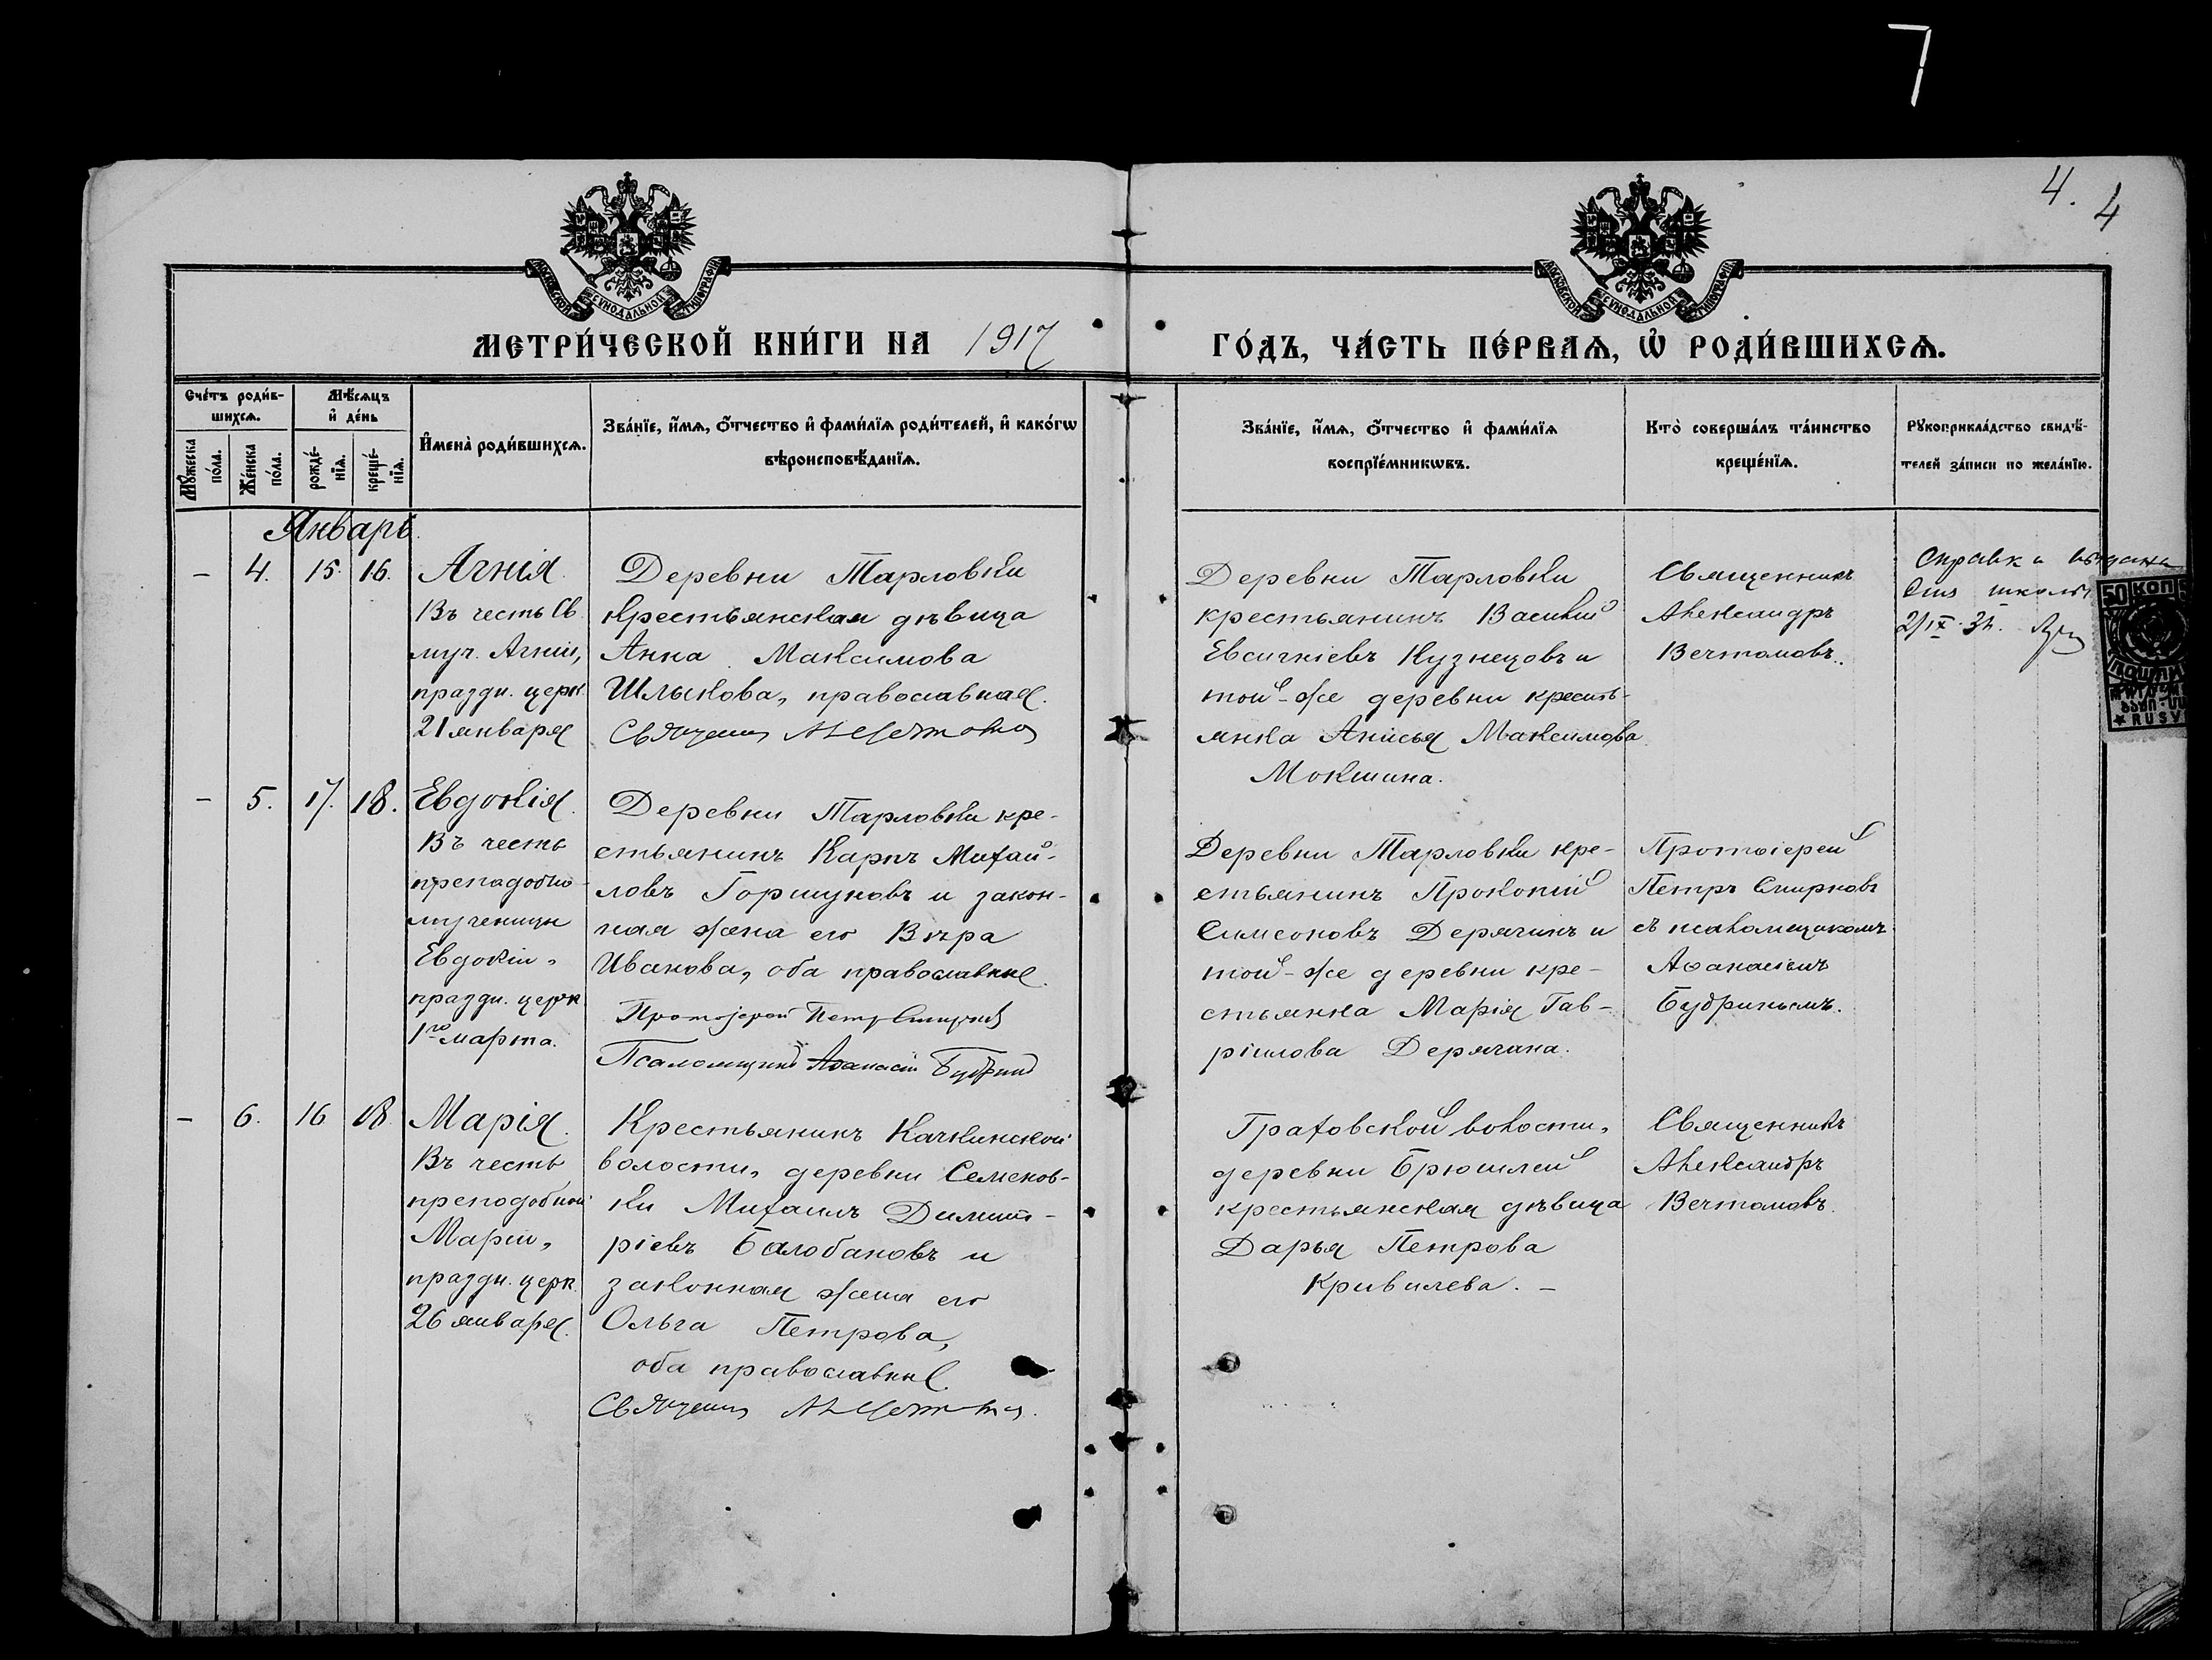 7
4. 4
МОСКОВСКОЙ СУНОДАЛЬНОЙ ТИПОГРАФІИ
МОСКОВСКОЙ СУНОДАЛЬНОЙ ТИПОГРАФІИ
МЕТРИ́ЧЕСКОЙ КНИ́ГИ НА 1917
ГО́ДЪ, ЧА́СТЬ ПЕ́РВАѦ, Ѡ҆ РОДИ́ВШИХСѦ.
Сче́тъ роди́в-
шихсѧ.
Мѣ́сѧцъ
и҆ де́нь
Мꙋ́жеска
по́ла.
Же́нска
по́ла.
рожде́-
нїѧ.
креще́-
нїѧ.
И҆мена̀ роди́вшихсѧ.
Зва́нїе, и҆́мѧ, ѻ҆́тчество и҆ фами́лїѧ роди́телей, и҆ како́гѡ
вѣроисповѣ́данїѧ.
Зва́нїе, и҆́мѧ, ѻ҆́тчество и҆ фами́лїѧ
воспрїе́мникѡвъ.
Кто̀ соверша́лъ та́инство
креще́нїѧ.
Рꙋкоприкла́дство свидѣ́-
телей за́писи по жела́нїю.
Январь
– 4. 15. 16.
Агнія.
Въ честь Св.
муч. Агніи,
праздн. церк.
21 января
Деревни Тарловки
крестьянская дѣвица
Анна Максимова
Шлыкова, православная.
Деревни Тарловки
крестьянинъ Василій
Евсигніевъ Кузнецовъ и
той-же деревни кресть-
янка Анисья Максимова
Мокшина.
Священникъ
Александръ
Вечтомовъ.
Справка выдана
для школы
2/IX-
50 КОП
– 5. 17. 18.
Евдокія.
Въ честь
преподобно-
мученицы
Евдокіи,
праздн. церк.
1го марта.
Деревни Тарловки кре-
стьянинъ Карпъ Михай-
ловъ Горшуновъ и закон-
ная жена его Вѣра
Иванова, оба православные.
Протоіерей Петръ Смирновъ
Псаломщикъ Аѳанасій Будринъ
Деревни Тарловки кре-
стьянинъ Прокопій
Симеоновъ Дерягинъ и
той-же деревни кре-
стьянка Марія Гав-
ріилова Дерягина.
Протоіерей
Петръ Смирновъ
съ псаломщикомъ
Аѳанасіемъ
Будринымъ.
– 6. 16 18
Марія.
Въ честь
преподобной
Маріи,
праздн. церк.
26 января.
Крестьянинъ Качкинской
волости, деревни Семенов-
ки Михаилъ Димит-
ріевъ Балобановъ и
законная жена его
Ольга Петрова,
оба православные.
Граховской волости,
деревни Брюшлей
крестьянская дѣвица
Дарья Петрова
Кривилева. –
Священникъ
Александръ
Вечтомовъ.